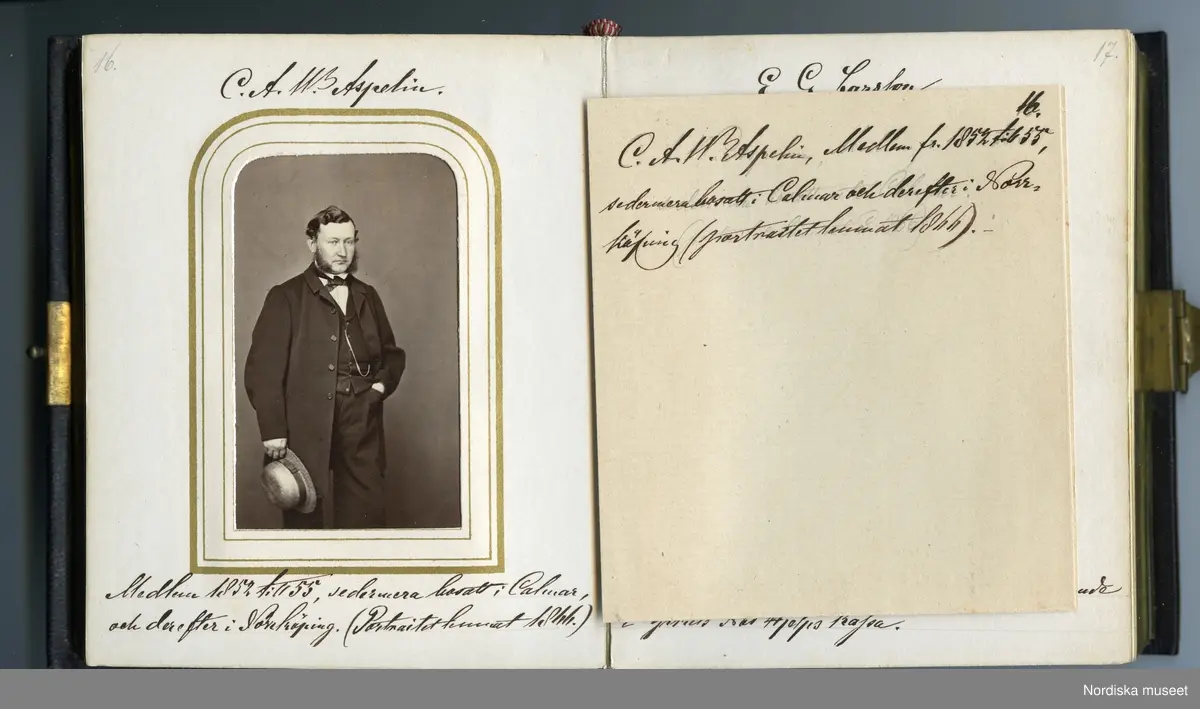 16.
C. A. W. Aspelin.
Medlem 1852 till 55, sedermera bosatt i Calmar,
och derefter i Norrköping. (Portraitet lemnat 1866.)
17.
E. G.
16.
C. A. W. Aspelin, Medlem fr. 1852 till 55,
sedermera bosatt i Calmar och derefter i Norr-
köping (portraitet lemnat 1866).
Hjelps kassa.
Nordiska museet